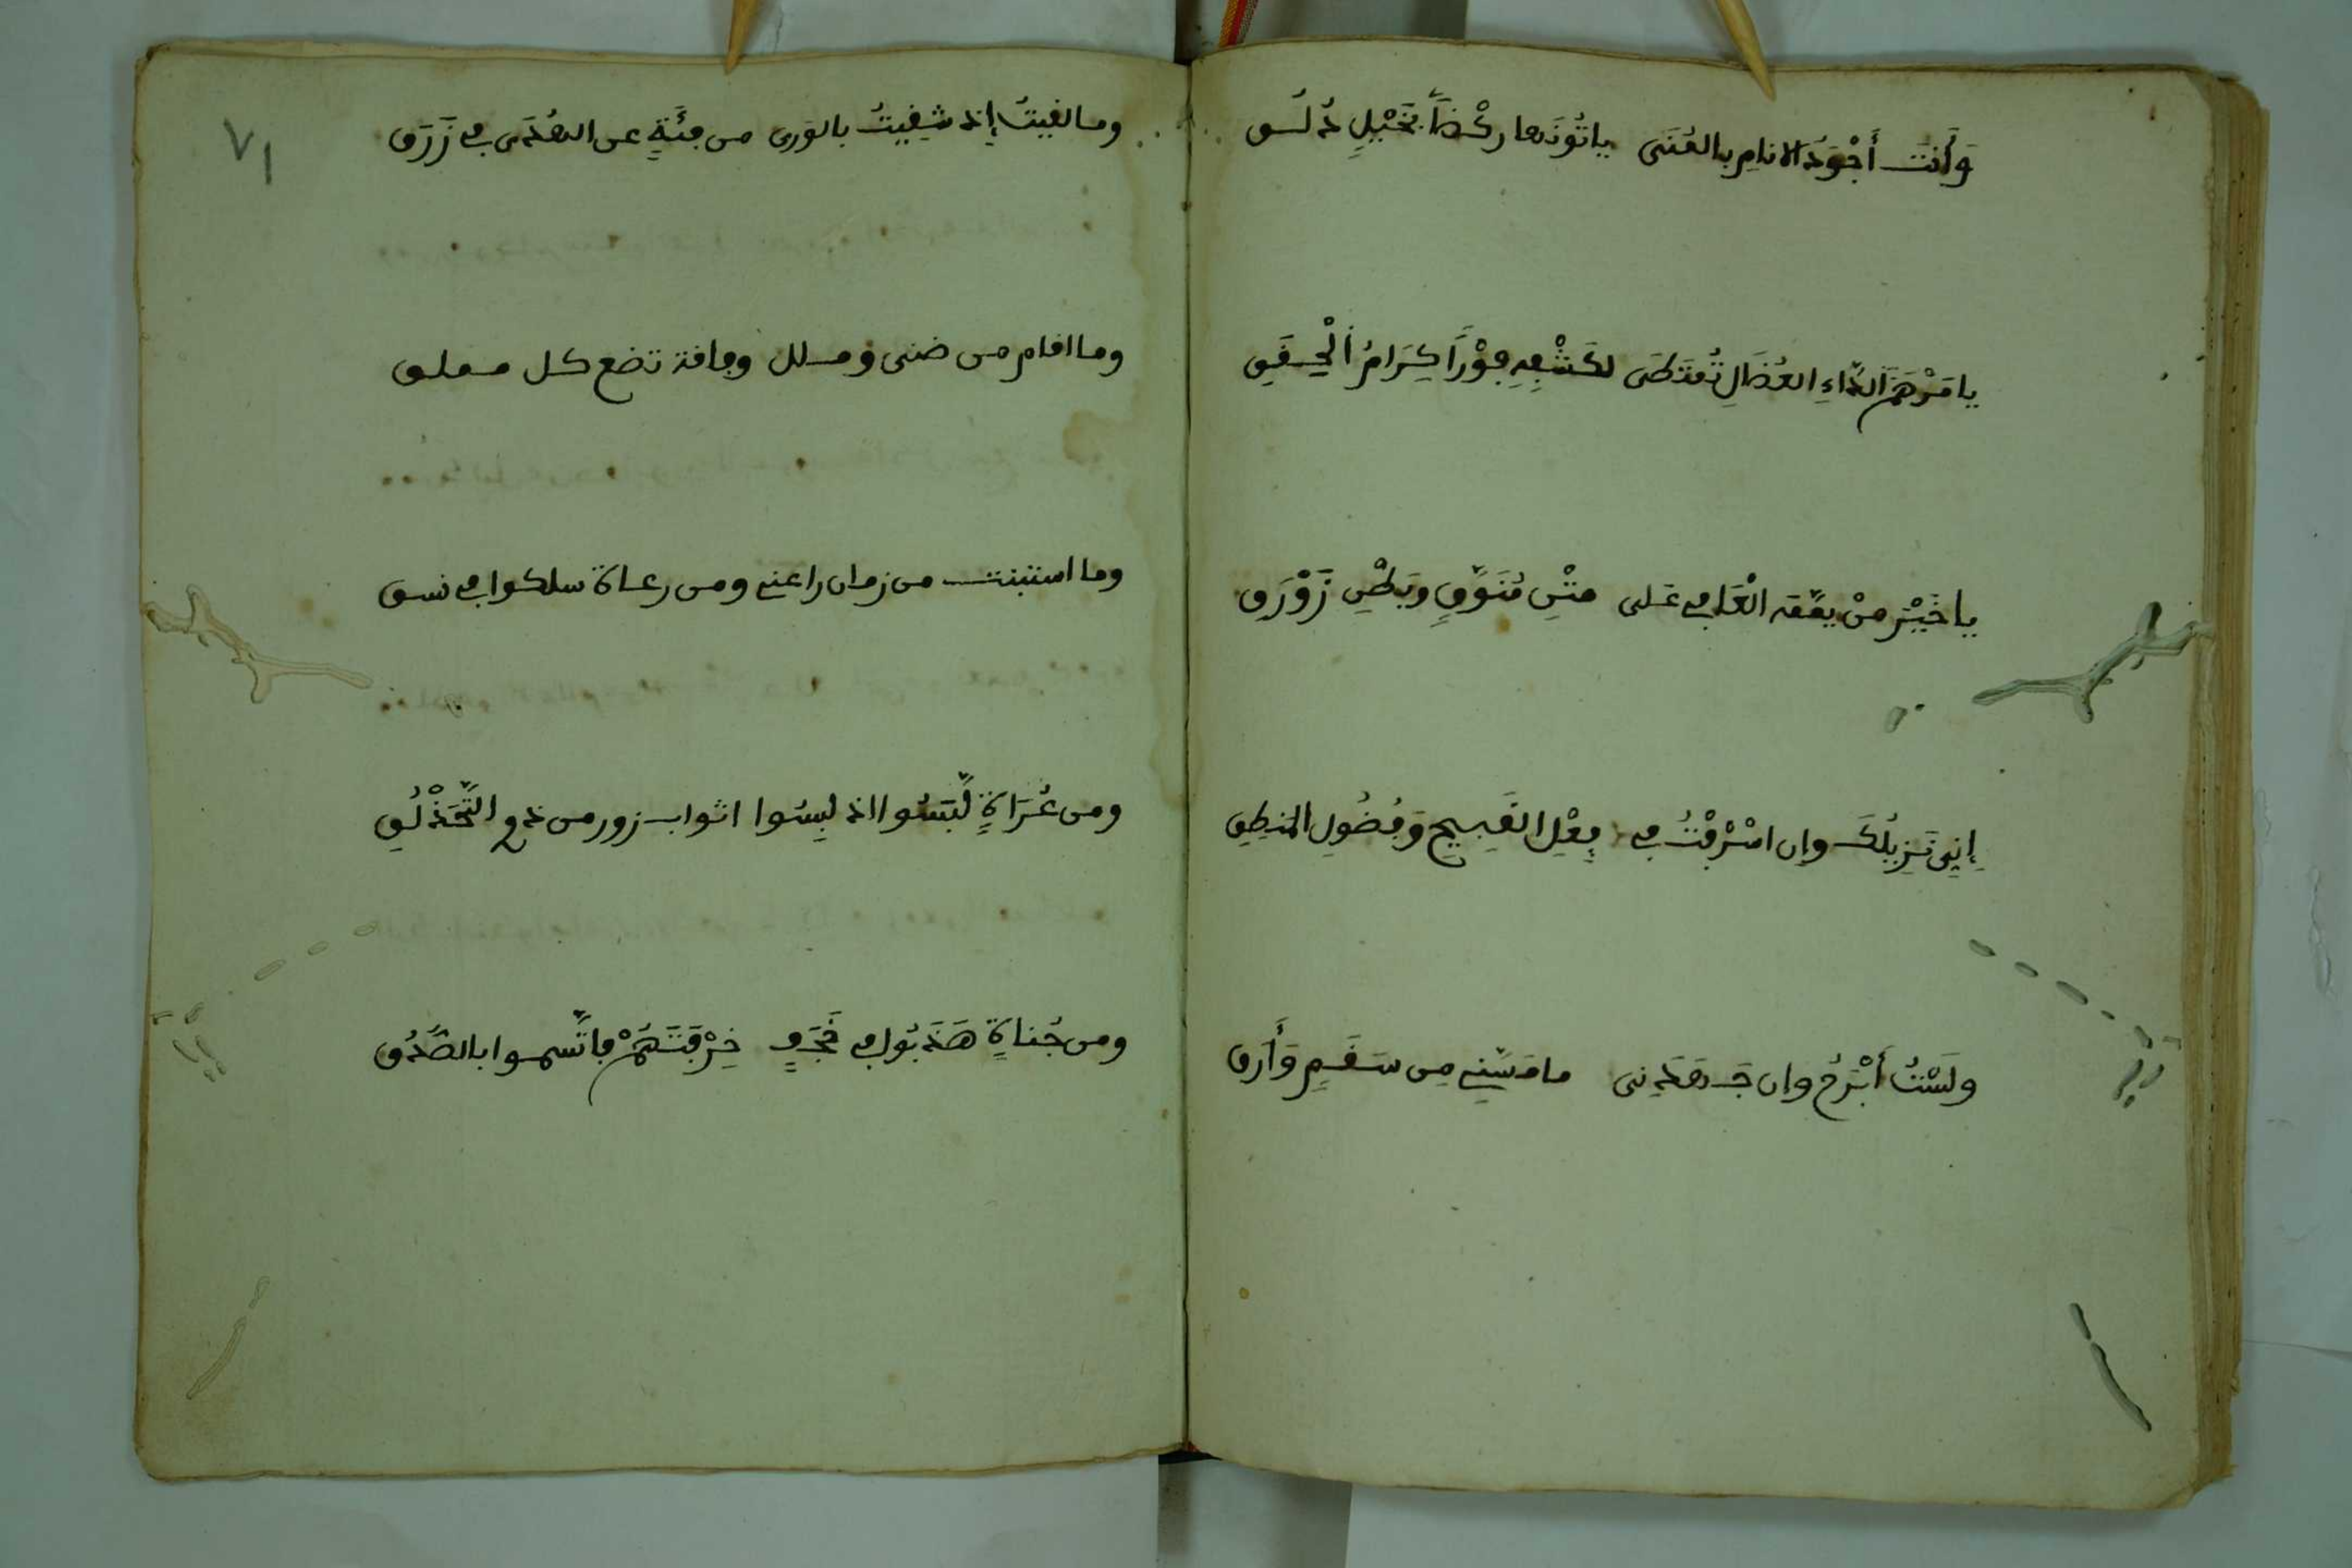 وَأَنت أَجْوَدُ الانامِ بالمُنَى ياتُونَها ركْضاً بخَيْلٍ دُلُق
يا مَرْهَمَ الدَّاءِ العُضَالِ تُمتَطَى لكَشْفِهِ فوْرَاً كِرَامُ أَيْنُقِ
يا خَيْرَ منْ يمَّمَه العَافي عَلى متْنِ مُنَوَّقٍ وبَطْنِ زَوْرَقِ
إِنِي نَزِيلُكَ وإن اسْرفْتُ في فِعْلِ القَبِيحِ وَفُضُولِ المنطِقِ
ولَسْتُ أبْرَحُ وان جَـ مَا مَسَّنِي مِن سَقَمٍ وَأَرَق
٧١
وما لفيتُ إذ شفِيتُ بالورى من فئَةٍ عن الهُدَى في زَرَق
وما اقام من ضنى وملل وفاقة تضع كل مملق
وما استبنت من زمان راعني ومن رعاة سلكوا في نسق
ومن عُرَاةٍ لَبَّسُوا اذ لبِسُوا اثواب زور من ذوي التَّحَذْلُقِ
ومن جُناةٍ هَذَبُوا في فَجَرٍ خِرْقَتَهُمْ فاتَّسموا بالصَّدُق